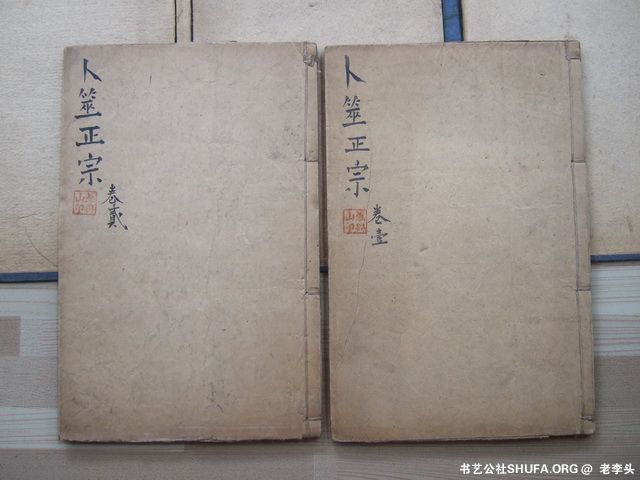 卜筮正宗
卷壹
卜筮正宗
卷貳
书艺公社SHUFA.ORG @ 老李头